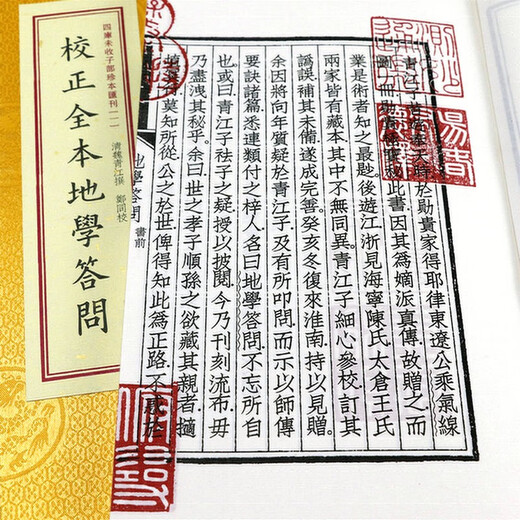 四庫未收子部珍本匯刊
校正全本地學答問
清魏青江撰 鄭同校
青江子昔奉天時於勛貴家得耶律東遼公乘氣線
圖一冊此書.因其為嫡派真傳.故贈之.而
業是術者知之最尠.後遊江浙.見海寧陳氏.太倉王氏
兩家皆有藏本.其中不無同異.青江子細心參校.訂其
譌誤.補其未備.遂成完善.癸亥冬.復來淮南.持以見贈.
余因將向年質疑於青江子.及有所叩問.而示以師傳
要訣諸篇.悉連類付之梓人.名曰地學答問.不忘所自
也.或曰.青江子祛子之疑.授以披閱.今乃刊刻流布.毋
乃盡洩其秘乎.余曰.世之孝子順孫之欲藏其親者.擿
莫知所從.公之於世.俾得知此為正路.不惑於
地學答問 書前